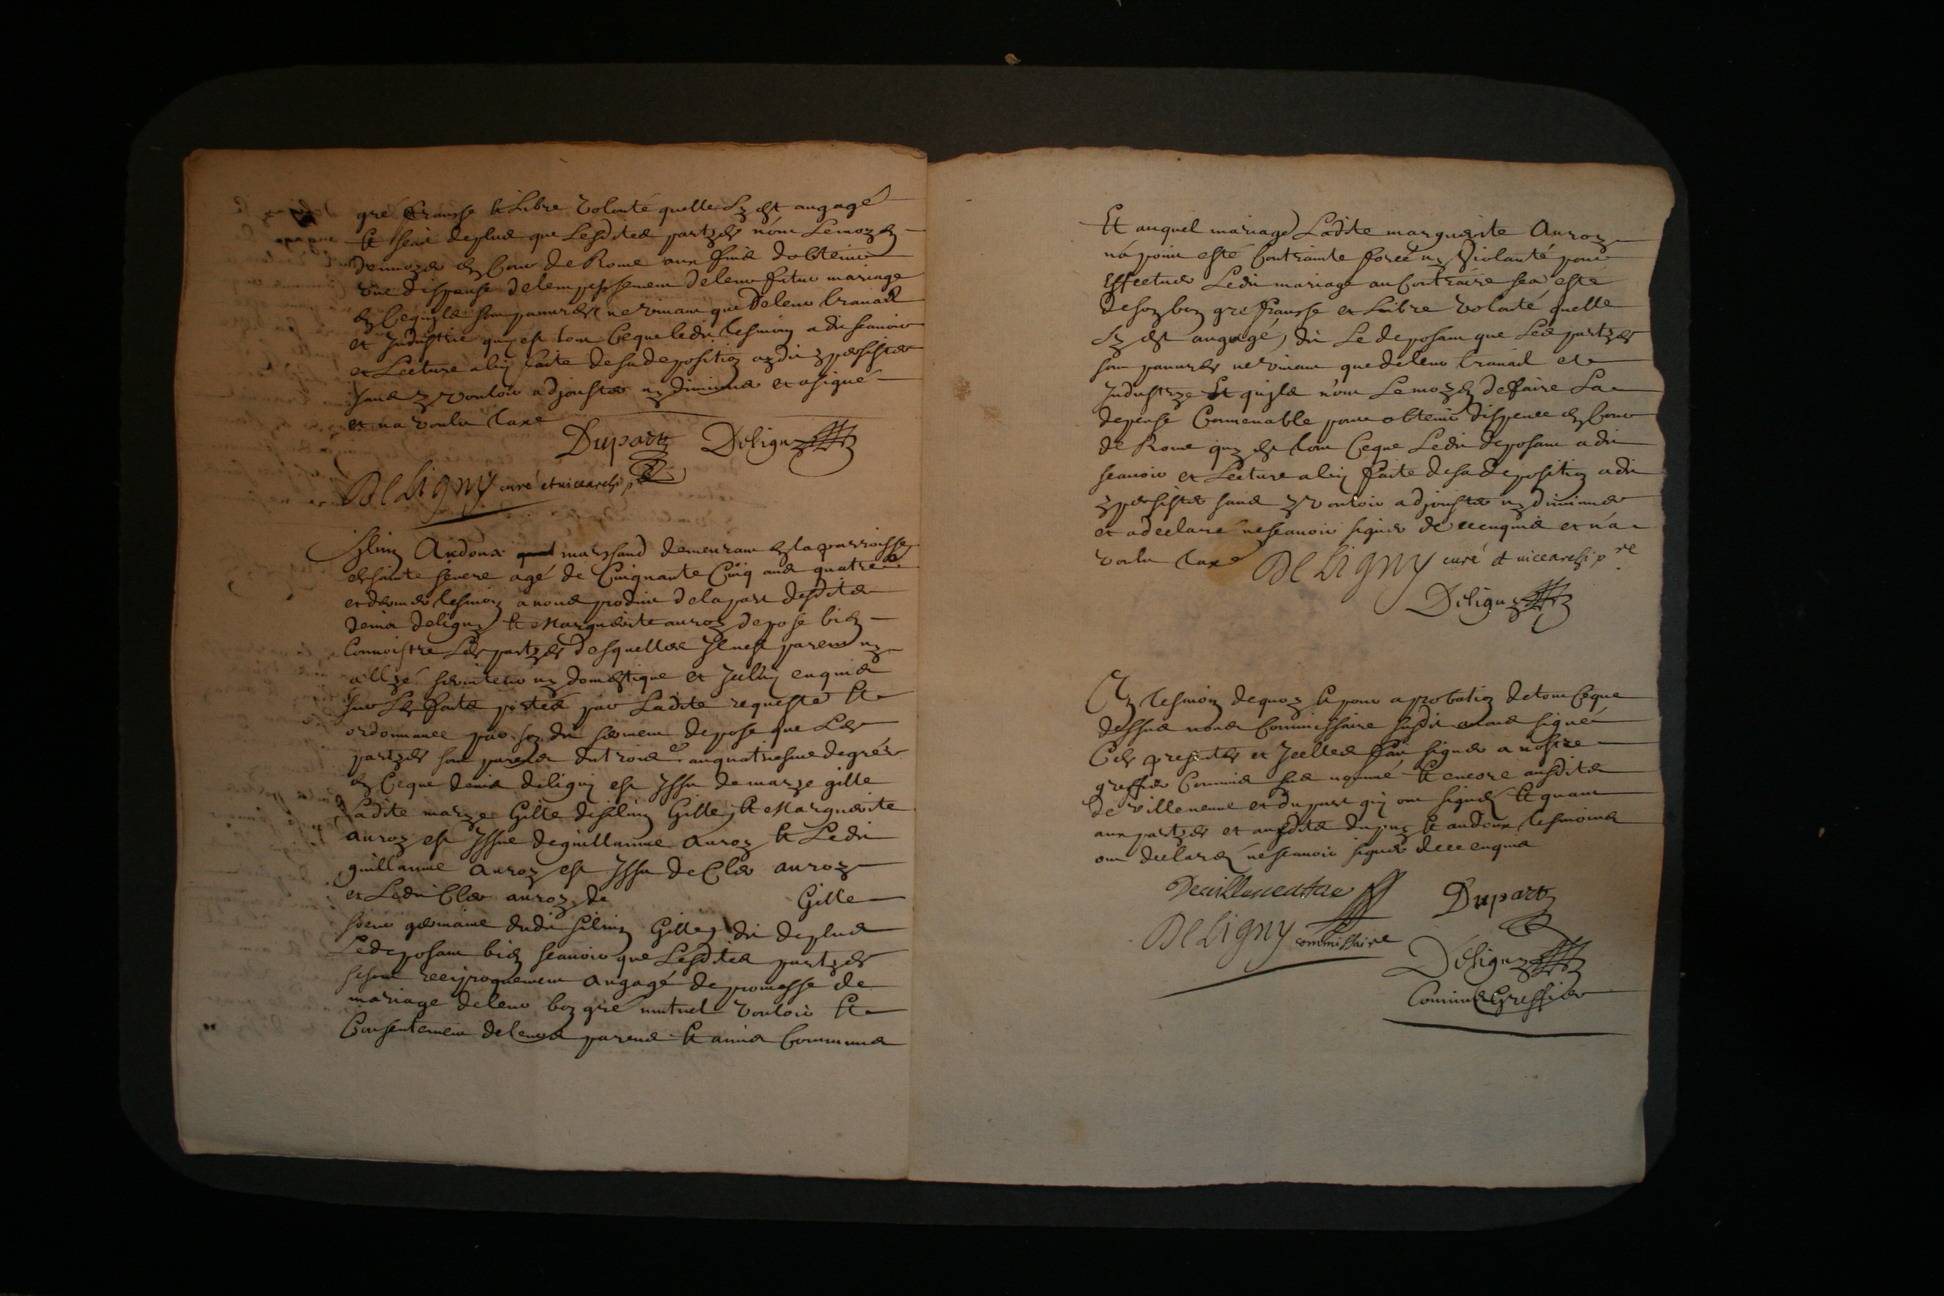 gré franche et Libre volonté quelle sy est angagé
et scai deplus que Lesdites partyes n'ont Lemoyen
denvoyer en Cour de Rome aux fins dobtenir
une dispense delempeschement deleur futur mariage
et Industrie quy est tout Ceque ledit tesmoin a dit scauoir
et Lecture a luy faite desa deposition a dit y persister
sans y vouloir adjouster ny diminuer et a signé
et n'a voulu taxe
Duparty Deligny
DeLigny curé et vicearchip
Silvin Audoux marchand demeurant en la parroisse
de sainte severe agé de Cinquante Cinq ans quatriesme
et dernier tesmoin a nous produit de la part desdits
denis deligny et Marguerite auroy depose bien
Connoistre Les partyes desquelles Il nest parent ny
allyé serviteur ny domestique et Iceluy enquis
sur Les faits portés par Ladite requeste et
ordonnance par son dit serment depose que Les
partyes sont parens du trois au quatriesme degrés
en Ceque denis deligny est Issu de marye gille
Ladite marye Gille de silvin Gille, et Marguerite
auroy est Issue de guillaume auroy et Ledit
guillaume auroy est Issu de Cler auroy
et Ledit Cler auroy de Gille
soeur germaine dudit silvin Gille, dit deplus
Ledeposant bien scauoir que Lesdites partyes
se sont reciproquement angagé de promesse de
mariage deleur bon gré mutuel vouloir et
Consentement deleurs parens et amis Communs
Et auquel mariage Ladite marguerite Auroy
n'a point esté Contrainte forcée ny Violanté pour
effectuer Ledit mariage au Contraire sea esté
de son bon gré franche et Libre Volonté quelle
sy est angagé, dit Le deposant que Les partyes
sont pauvres ne vivant que deleur travail et
Industrye Et quils n'ont Lemoyen defaire La
depense Convenable pour obtenir dispence en Cour
de Rome quy est tout Ceque Ledit deposant a dit
scauoir et Lecture a luy faite desa deposition a dit
y persister sans y vouloir adjouster ny diminuer
et a declaré ne scauoir signer de ce enquis et n'a
voulu taxe DeLigny curé et vicearchip re
Deligny
En tesmoin dequoy et pour aprobation de tout Ceque
dessus nous Commissaire susdit avons signé
Ces presentes et Icelles fait signer a nostre
greffier Commis sus nommé et encore ausdits
de villeneuve et dupart quy ont signés et quant
aux partyes et ausdits et audoux tesmoins
ont declarés ne scauoir signer de ce enquis
Devilleneufve Duparty
DeLigny commissaire
Deligny
Commis Greffier